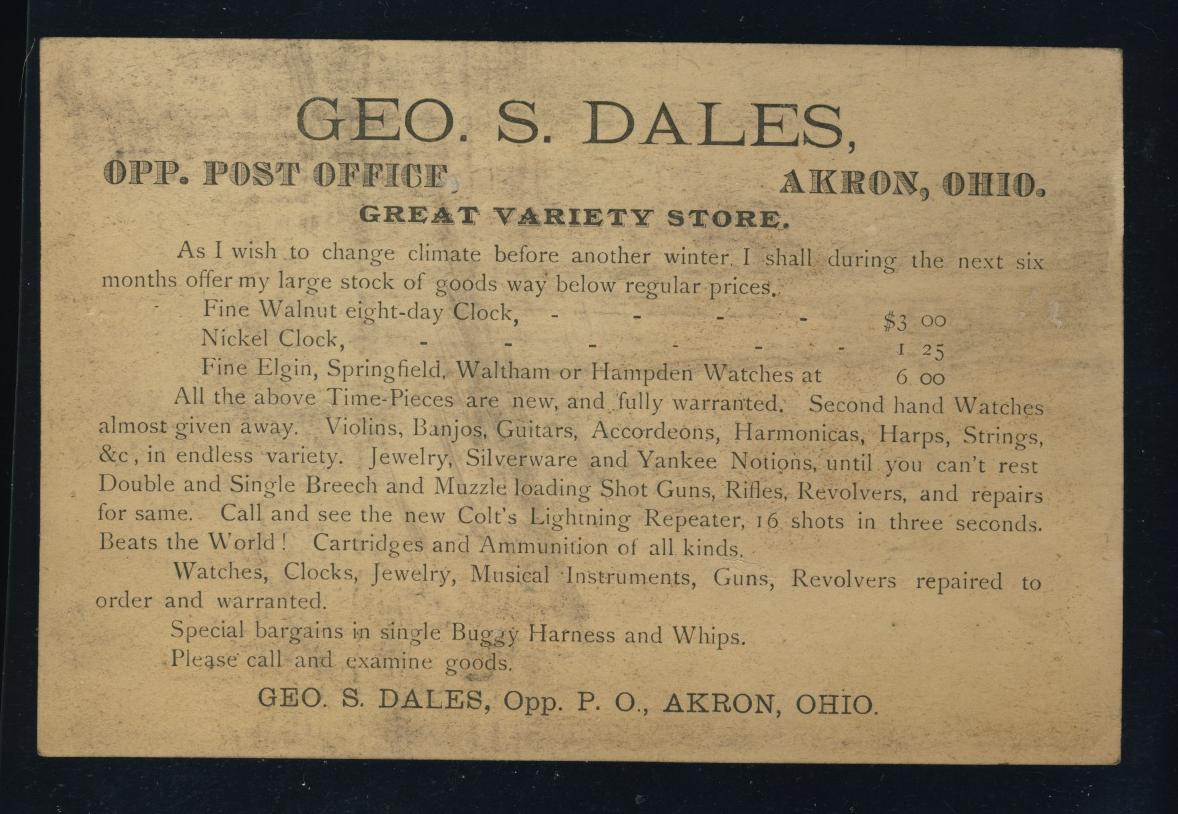 GEO. S. DALES,
OPP. POST OFFICE, AKRON, OHIO.
GREAT VARIETY STORE.
As I wish to change climate before another winter, I shall during the next six
months offer my large stock of goods way below regular prices.
Fine Walnut eight-day Clock, - - - - $3 00
Nickel Clock, - - - - - - 1 25
Fine Elgin, Springfield, Waltham or Hampden Watches at 6 00
All the above Time-Pieces are new, and fully warranted. Second hand Watches
almost given away. Violins, Banjos, Guitars, Accordeons, Harmonicas, Harps, Strings,
&c, in endless variety. Jewelry, Silverware and Yankee Notions, until you can't rest
Double and Single Breech and Muzzle loading Shot Guns, Rifles, Revolvers, and repairs
for same. Call and see the new Colt's Lightning Repeater, 16 shots in three seconds.
Beats the World! Cartridges and Ammunition of all kinds.
Watches, Clocks, Jewelry, Musical Instruments, Guns, Revolvers repaired to
order and warranted.
Special bargains in single Buggy Harness and Whips.
Please call and examine goods.
GEO. S. DALES, Opp. P. O., AKRON, OHIO.